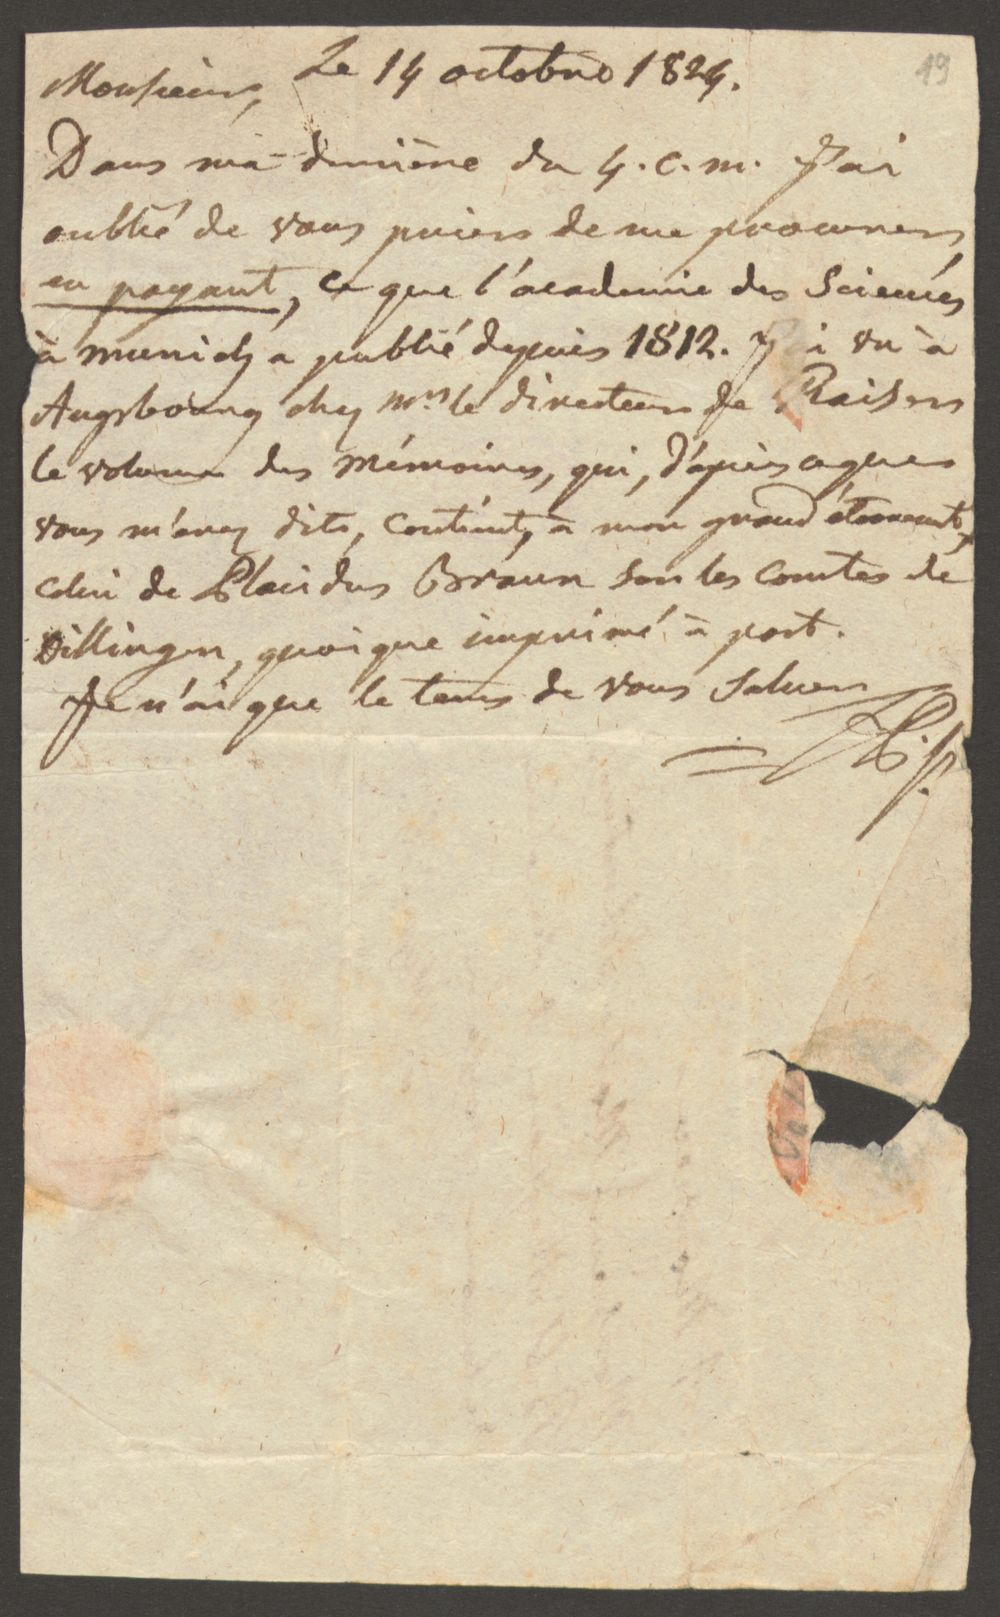 19
Le 14 octobre 1824.
Monsieur,
Dans ma dernière du 4. c. m. J'ai
oublié de vous prier de me procurer,
en payant, ce que l'academie des Sciences
à Munich a publié depuis 1812. J'ai vu à
Augsbourg chez Mr. le directeur de Raiser
le volume des Mémoires, qui, d'après ce que
vous m'avez dits, contient, a mon grand
celui de Placidus Braun sur les Comtes de
Dillingen, quoique imprimé à part.
Je n'ai que le tems de vous saluer